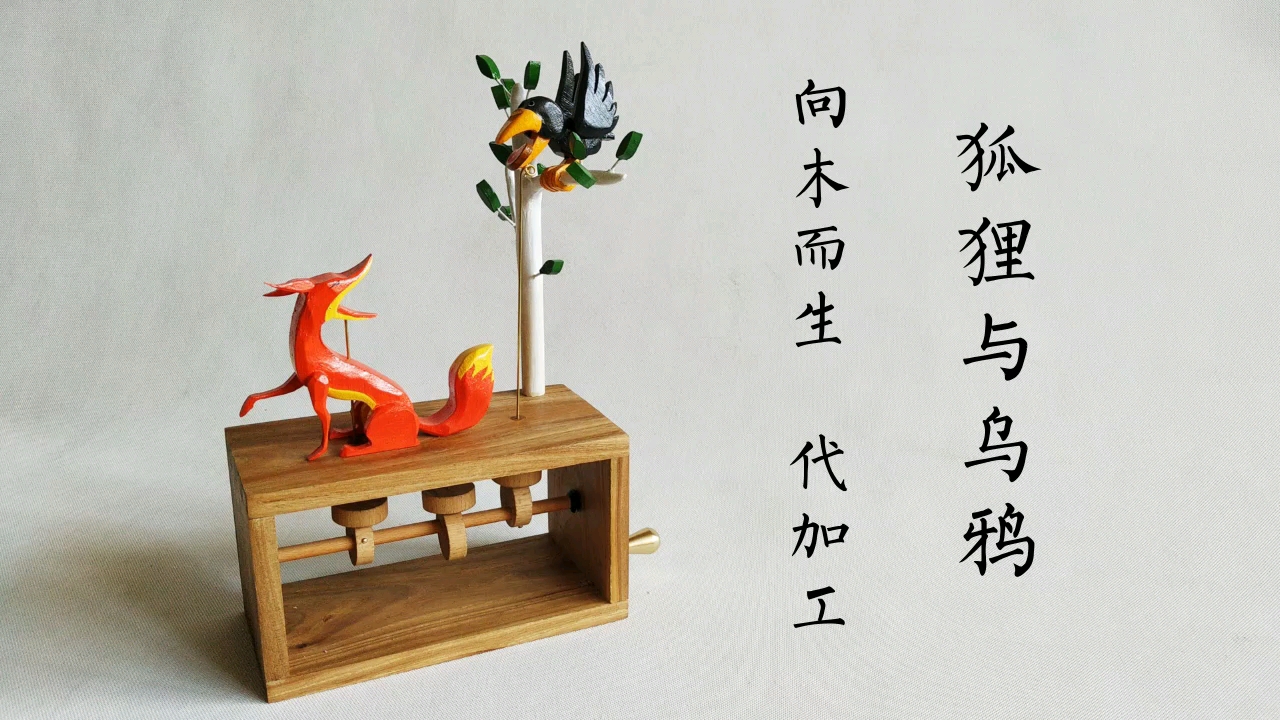 狐狸与乌鸦
向木而生 代加工